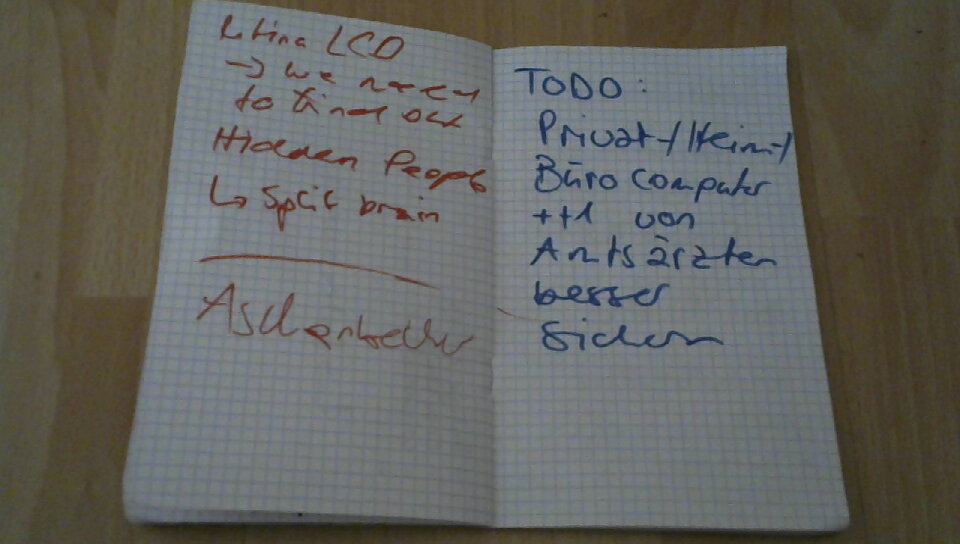 LCD
→ we need
to find out
Hidden People
↳ Split brain
Aschenbecher
TODO:
Privat-/Heim-/
Büro computer
++1 von
Amtsärzten
besser
Sichern